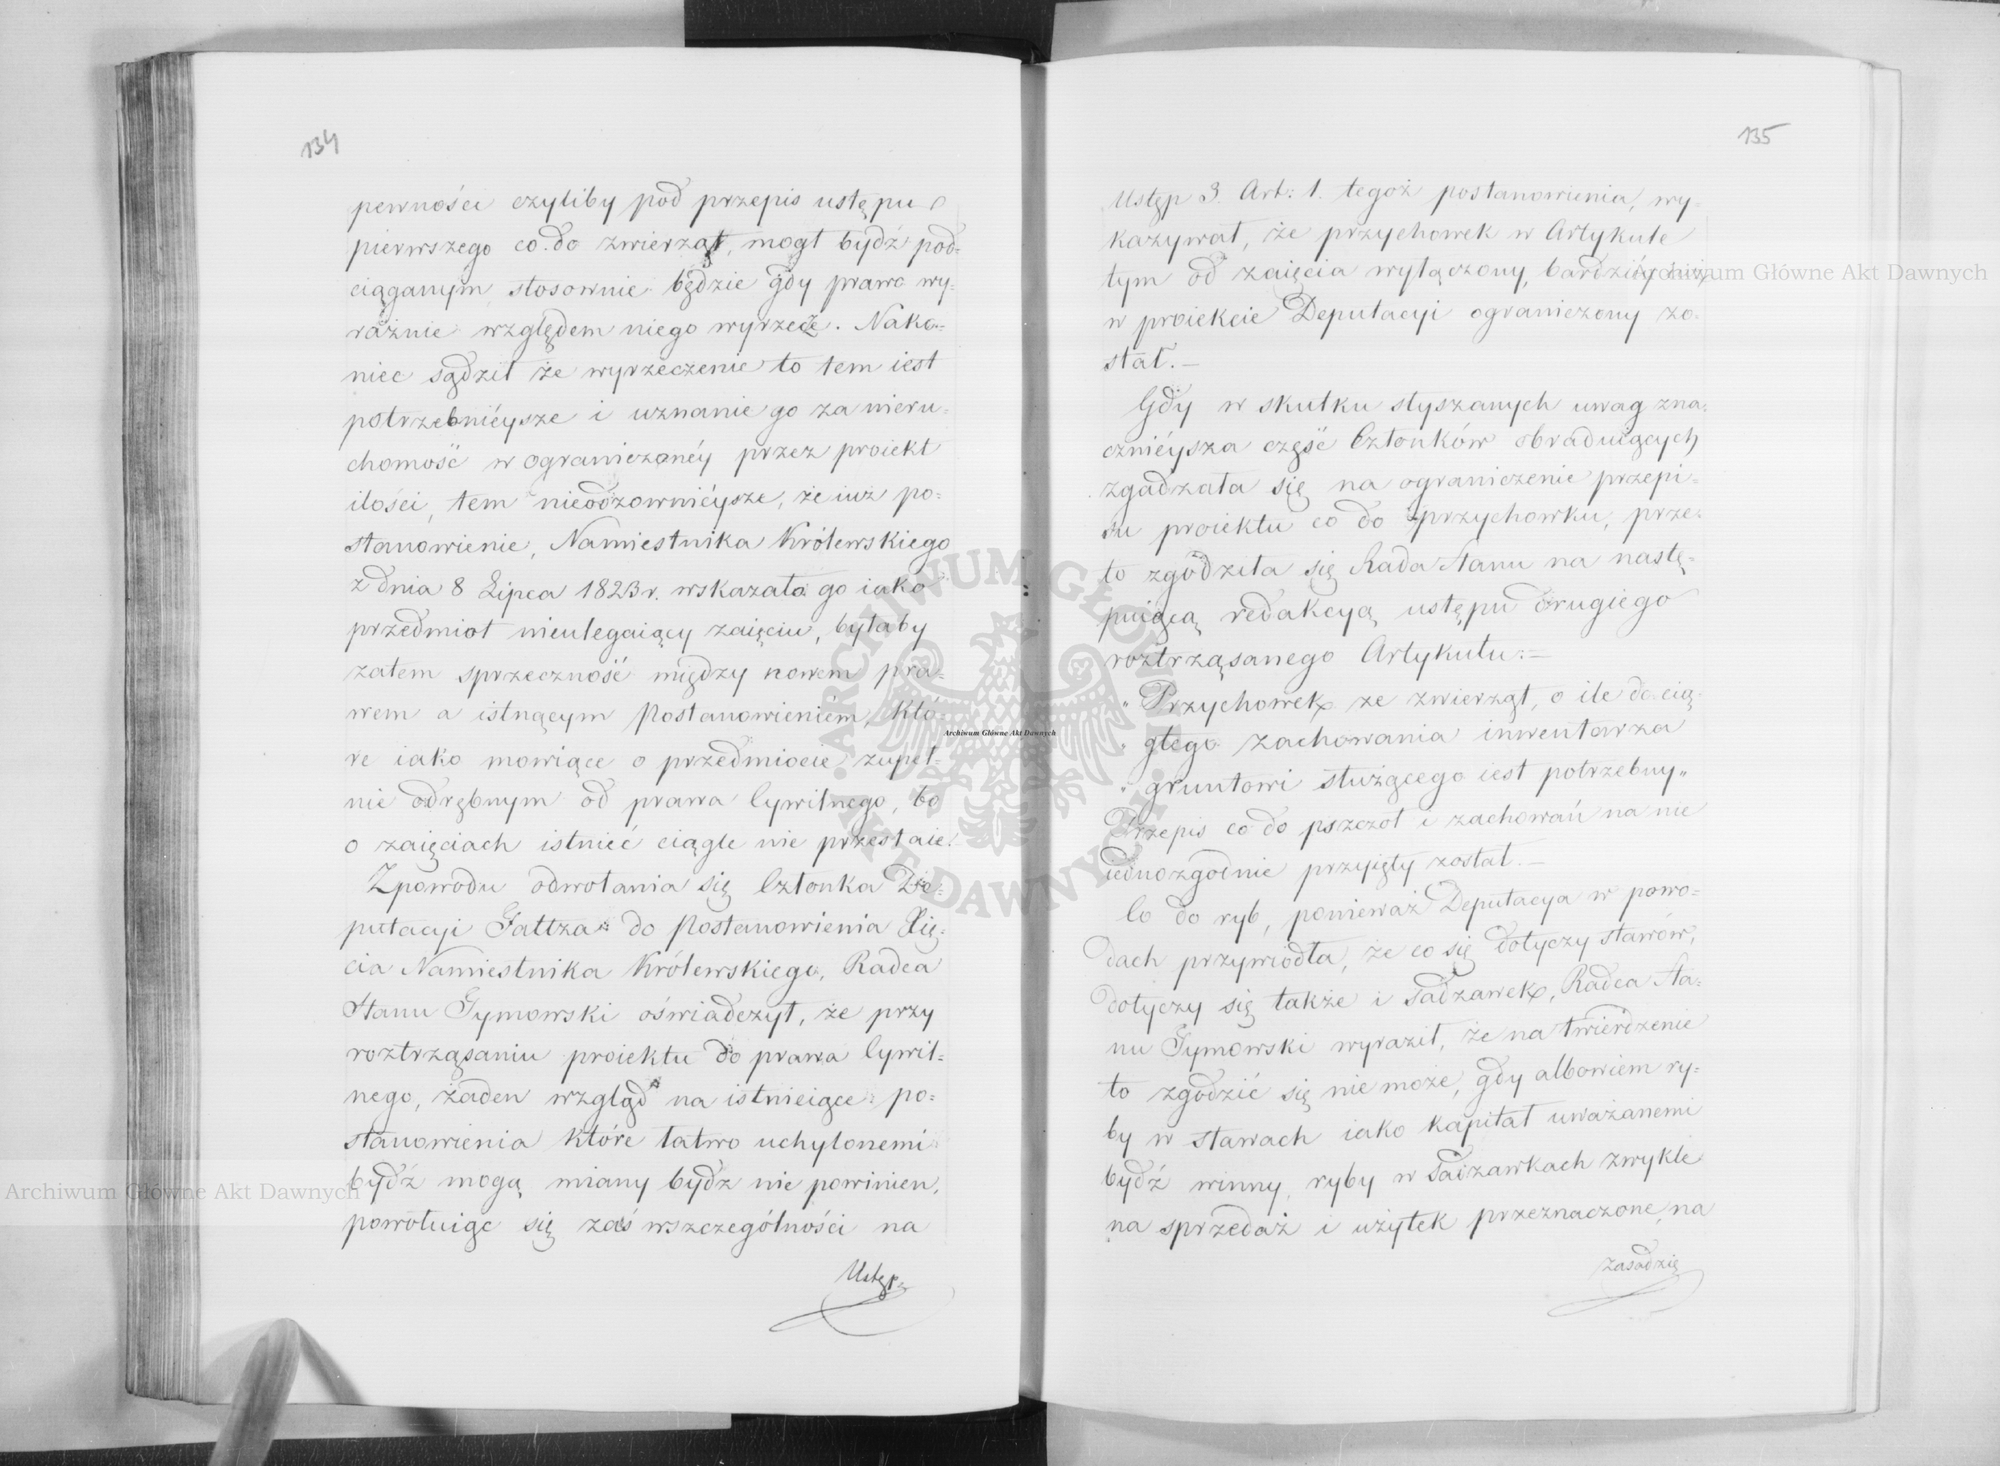 134
pewności czyliby pod przepis ustępu
pierwszego co do zwierząt, mogł bydź pod=
ciąganym, stosownie będzie gdy prawo wy=
raźnie względem niego wyrzecze. Nako=
niec sądził że wyrzeczenie to tem iest
potrzebnieysze i uznanie go za nieru=
chomość w ograniczonéy przez proiekt
ilości, tem nieodzownieysze, że iuż po=
stanowienie, Namiestnika Królewskiego
z dnia 8 Lipca 1823 r. wskazało go iako
przedmiot nieulegaiący zaięciu, byłaby
zatem sprzeczność między nowem pra=
wem a istnącym Postanowieniem, któ=
re iako mowiące o przedmiocie zupeł=
nie odrębnym od prawa Cywilnego, bo
o zaięciach istnieć ciągle nie przestaie.
Zpowodu odwołania się Członka De=
putacyi Faltza do Postanowienia Xię=
cia Namiestnika Królewskiego, Radca
Stanu Tymowski oświadczył, że przy
roztrząsaniu proiektu do prawa Cywil=
nego, żaden wzgląd na istnieiące po=
stanowienia które łatwo uchylonemi
bydź mogą miany bydź nie powinien,
powołuiąc się zaś wszczególności na
Ustęp
135
Ustęp 3. Art: 1. tegoż postanowienia, wy=
kazywał, że przychowek w Artykule
tym od zaięcia wyłączony, bardziéy niż
w proiekcie Deputacyi ograniczony zo=
stał.—
Gdy w skutku słyszanych uwag zna=
cznieysza część Członków obraduiących
zgadzała się na ograniczenie przepi=
su proiektu co do przychowku, prze=
to zgodziła się Rada Stanu na nastę=
puiącą redakcyą ustępu drugiego
roztrząsanego Artykułu:—
" Przychowek ze zwierząt, o ile do cią=
" głego zachowania inwentarza
" gruntowi służącego iest potrzebny"
Przepis co do pszczoł i zachowań na nie
iednozgodnie przyięty został.—
Co do ryb, ponieważ Deputacya w powo=
dach przywiodła, że co się dotyczy stawów,
dotyczy się także i sadzawek, Radca Sta=
nu Tymowski wyraził, że na twierdzenie
to zgodzić się nie może, gdy albowiem ry=
by w stawach iako kapitał uważanemi
bydź winny, ryby w sadzawkach zwykle
na sprzedaż i użytek przeznaczone, na
zasadzie
Archiwum Główne Akt Dawnych
Archiwum Główne Akt Dawnych
Archiwum Główne Akt Dawnych
ARCHIWUM GŁÓWNE AKT DAWNYCH